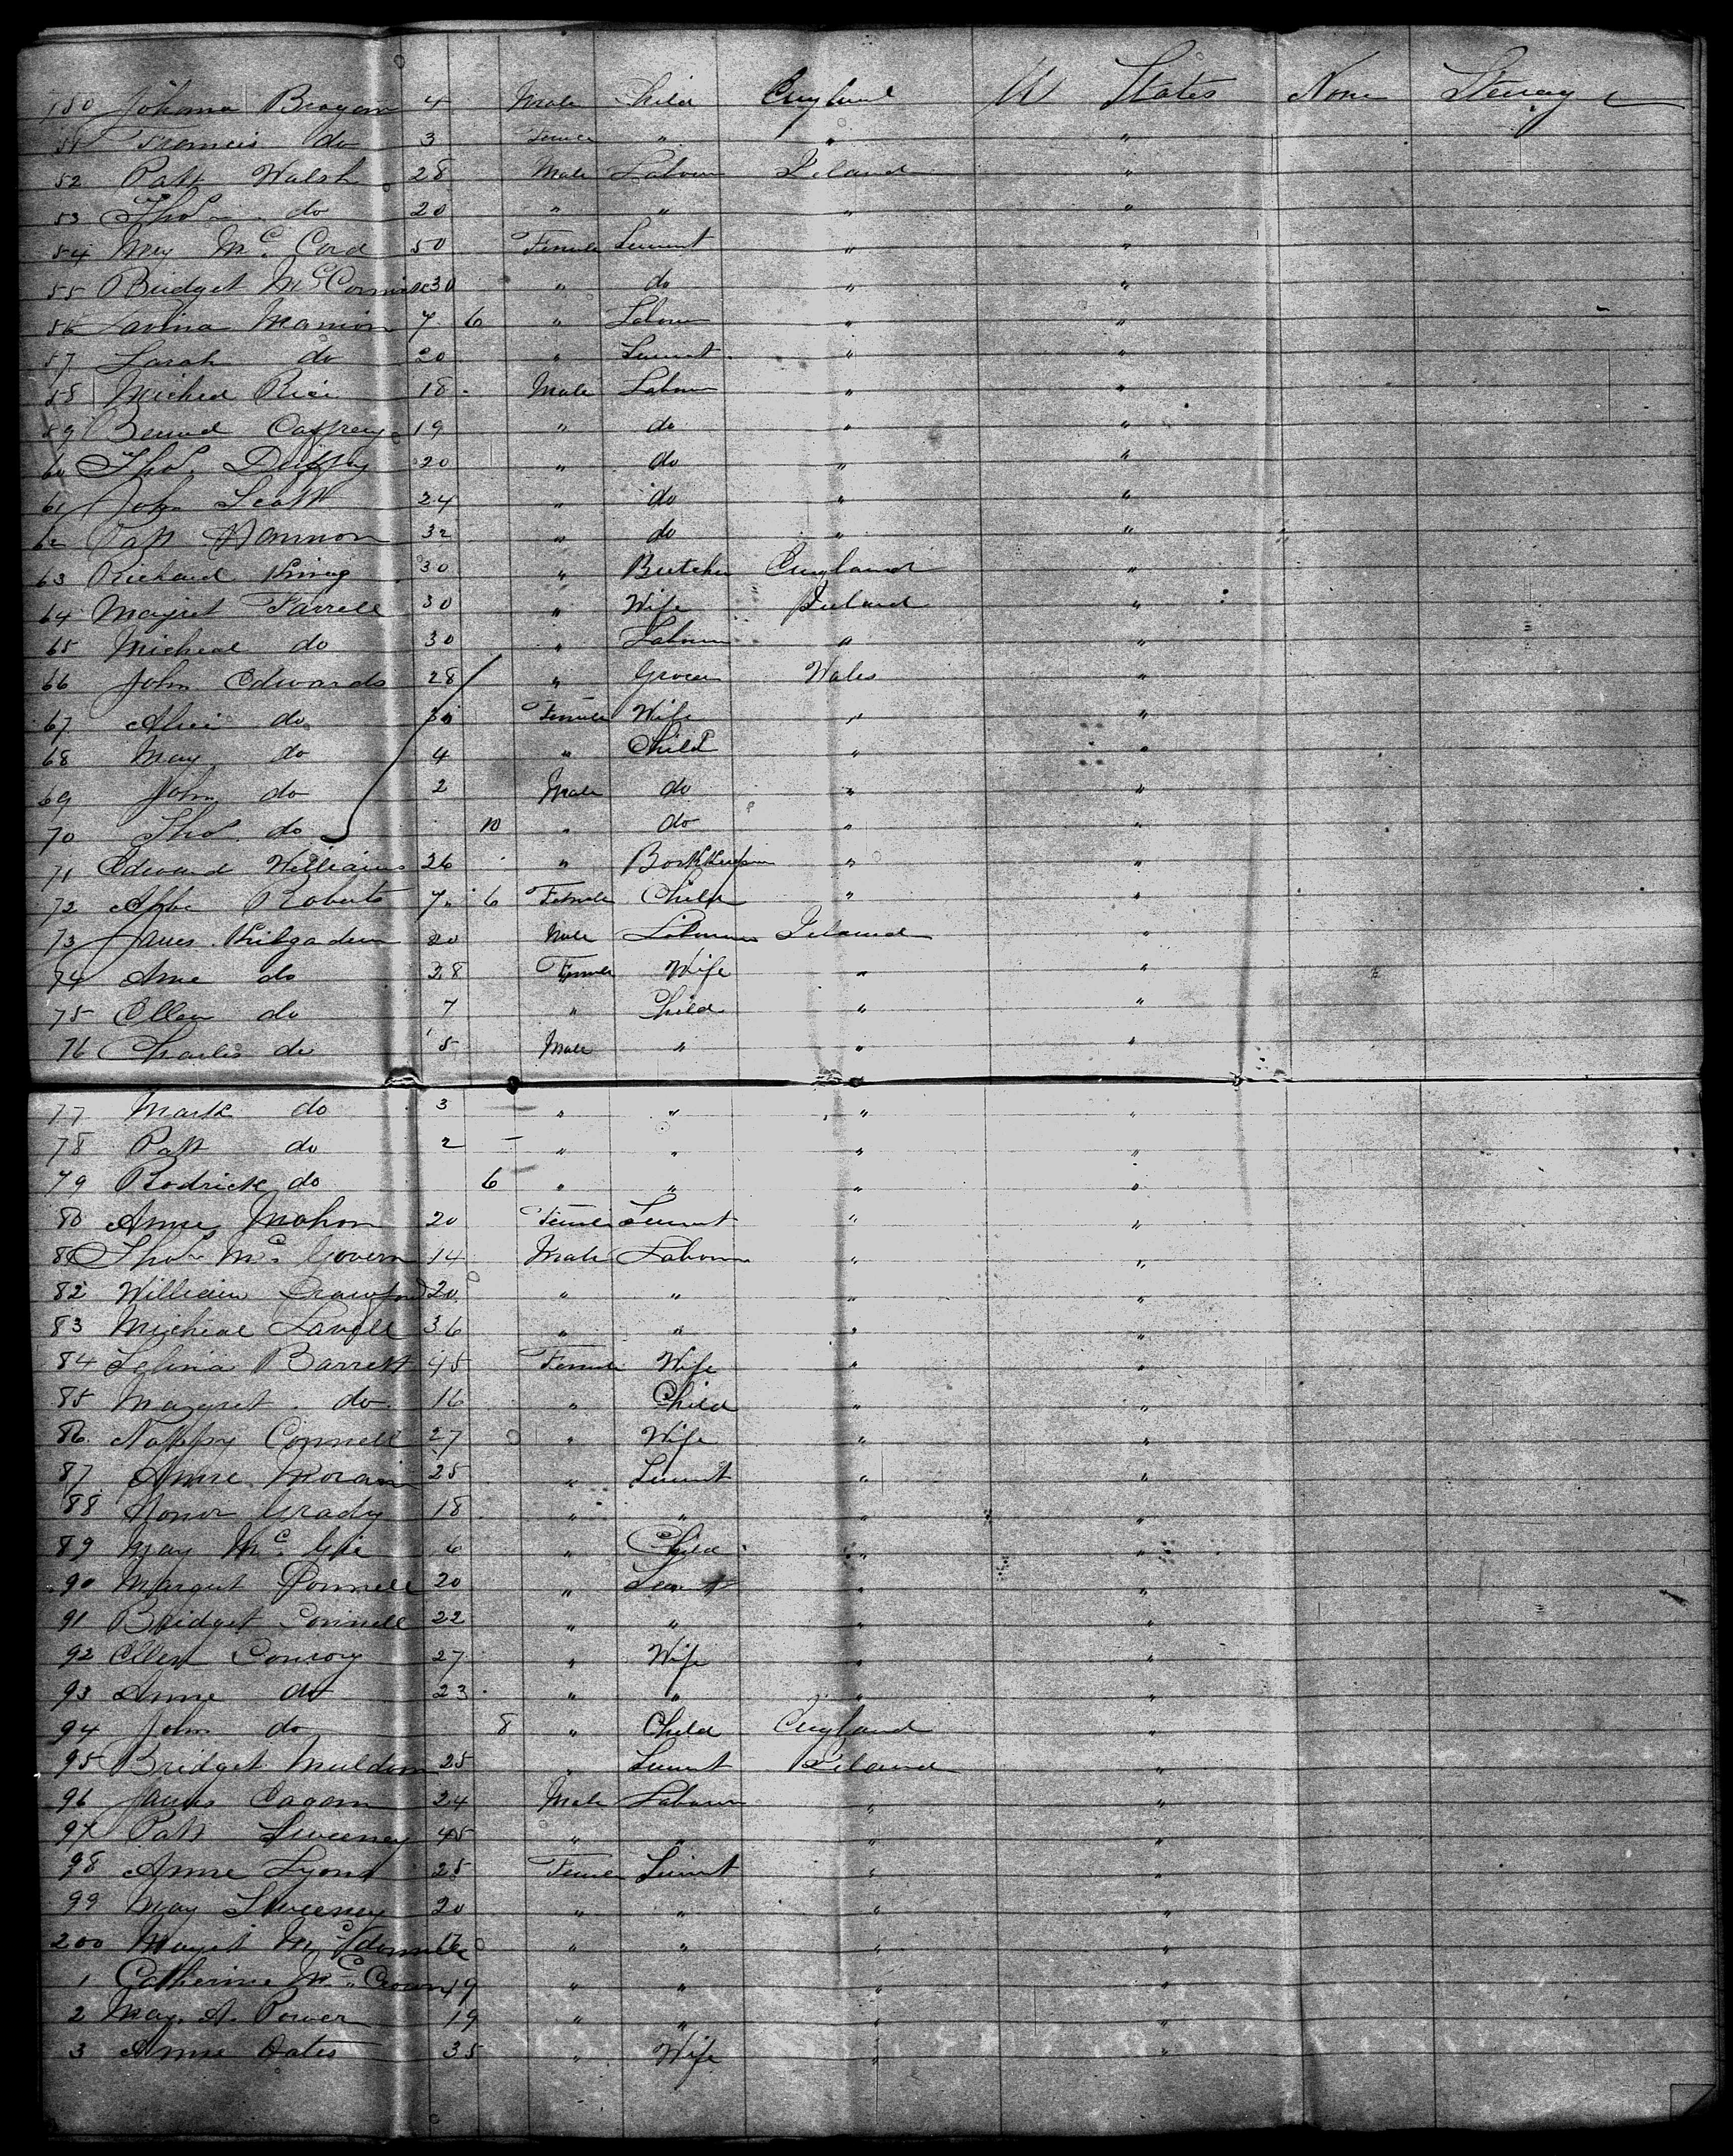 150 Johana Brogan 4 Male Child England U States None Steerage
51 Francis do 3 Female " " "
52 Patt Walsh 28 Male Labour Ireland "
53 Thos do 20 " " " "
54 Mary Mc Cord 50 Female Servant " "
55 Bridget McCormick 30 " do " "
56 Lavina Manion 7 6 " Labour " "
57 Sarah do 20 " Servant " "
58 Micheal Rice 18 Male Labour " "
59 Bernard Caffrey 19 " do " "
60 Thos. Duffy 20 " do " "
61 John Scott 24 " do " "
62 Patt Hannon 32 " do " "
63 Richard 30 " Butcher England "
64 Margret Farrell 30 " Wife Ireland "
65 Micheal do 30 " Labour " "
66 John Edwards 28 " Grocer Wales "
67 Alice do 30 Female Wife " "
68 Mary do 4 " Child " "
69 John do 2 Male do " "
70 Thos do 10 " do " "
71 Edward Williams 26 " Bookkeeper " "
72 Roberts 7 6 Female Child " "
73 James 20 Male Labourer Ireland "
74 Anne do 28 Female Wife " "
75 Ellen do 7 " Child " "
76 Charles do 5 Male " " "
77 Mark do 3 " " " "
78 Patt do 2 " " " "
79 Rodrick do 6 " " " "
80 Anne Mahon 20 Female Servant " "
81 Thos Mc Govern 14 Male Labour " "
82 William Crawford 20 " " " "
83 Micheal Lavell 36 " " " "
84 Selina Barrett 45 Female Wife " "
85 Margret do 16 " Child " "
86 Connell 27 " Wife " "
87 Anne Moran 25 " Servant " "
88 Honor Grady 18 " " " "
89 Mary Mc 6 " Child " "
90 Margret Connell 20 " Servant " "
91 Bridget Connell 22 " " " "
92 Ellen Conroy 27 " Wife " "
93 Anne do 23 " " " "
94 John do 8 " Child England "
95 Bridget Muldoon 25 " Servant Ireland "
96 James Cagan 24 Male Labour " "
97 Patt Sweeney 45 " " " "
98 Anne Lyons 25 Female Servant " "
99 Mary Sweeney 20 " " " "
200 Margret McDonnell 16 " " " "
1 Catherine Mc Crown 19 " " " "
2 Mary A. Power 19 " " " "
3 Anne Oates 35 " Wife " "